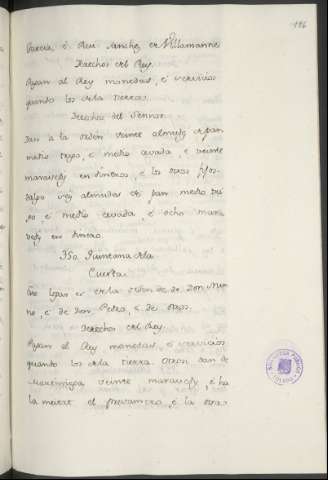 196
Garcia, é Rui Sanchez de Villamanne
Derechos del Rey.
Pagan al Rey monedas, é servicios
quando los de la tierra.
Derechos del Sennor.
Dan a la orden veinte almudes de pan
medio trigo, é medio cevada, é veinte
maravedis en dineros, é los otros fijos
dalgo diez almudes de pan medio tri
go é medio cevada, é ocho mara
vedis en dinero.
350 Quintana de la
Cuesta
Este logar es de la orden é de Don Nun
no, é de Don Pedro, é de otros.
Derechos del Rey.
Pagan al Rey monedas, é servicios
quando los de la tierra. Otrosi dan de
Martiniega veinte maravedis, é ha
la meitat el Prestamero, é la otra